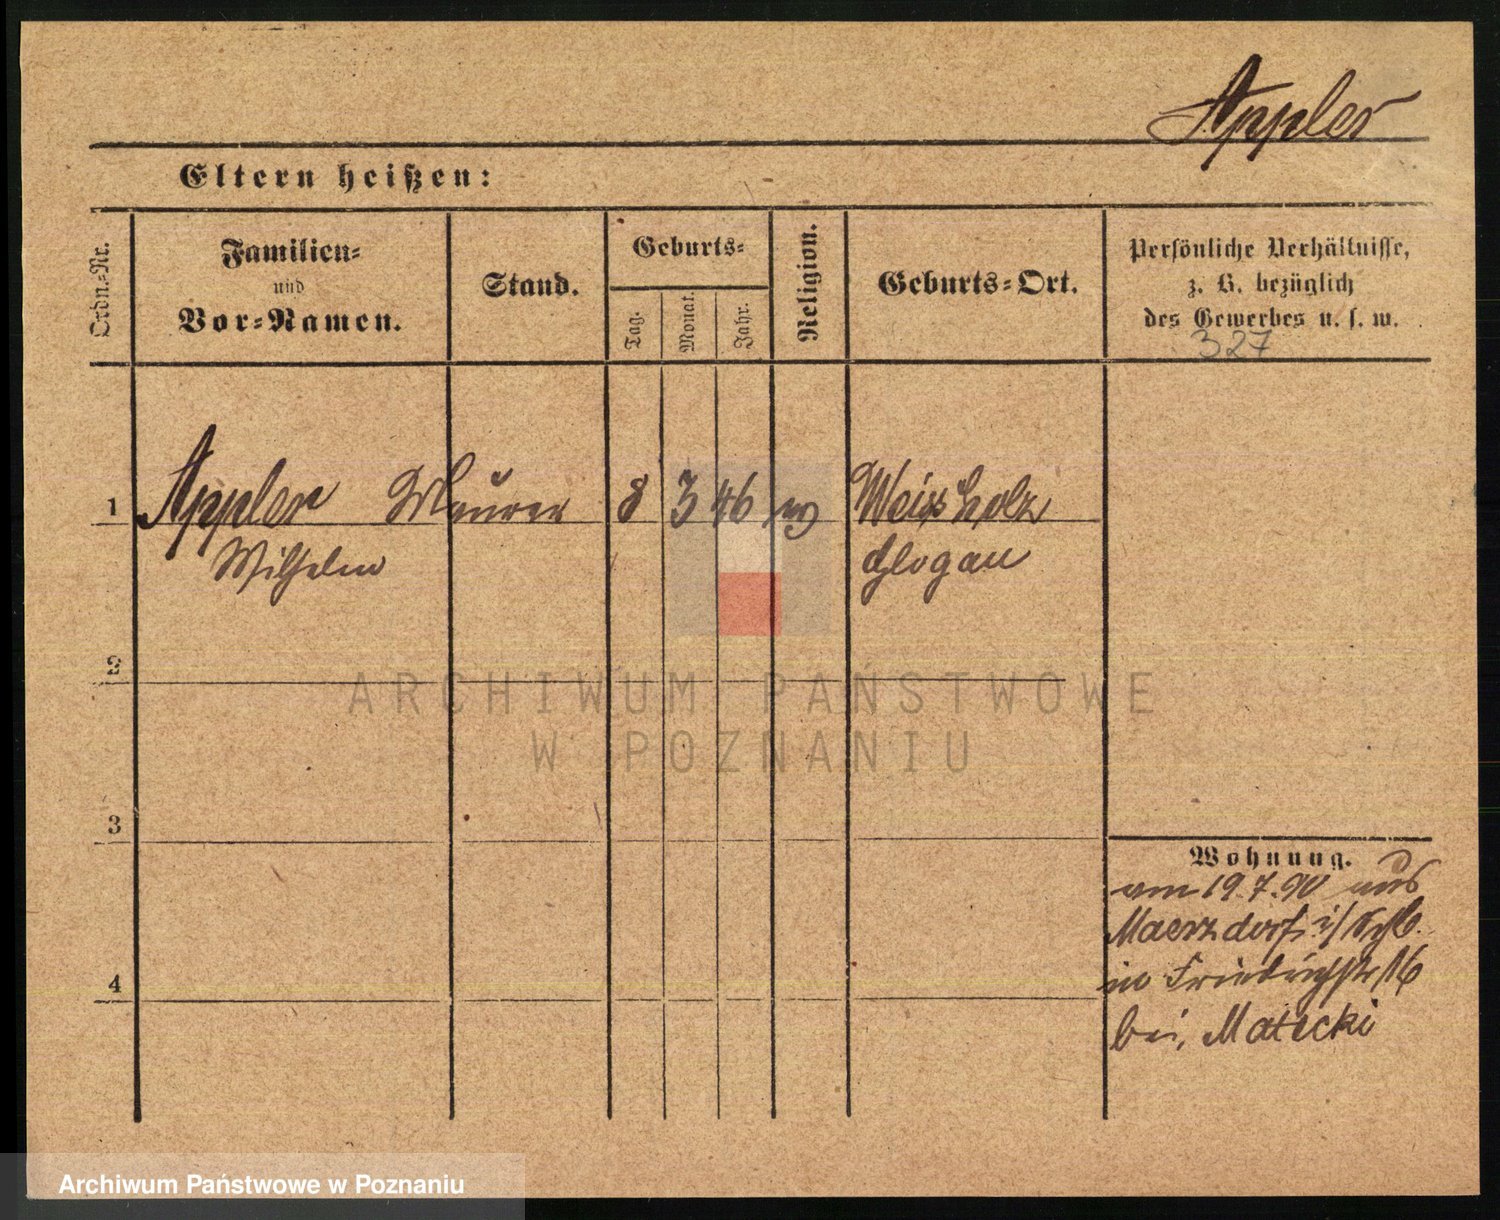 Appler
Eltern heißen:
Ordn.-Nr.
Familien-
und
Vor-Namen.
Stand.
Geburts-
Tag.
Monat.
Jahr.
Religion.
Geburts-Ort.
Persönliche Verhältnisse,
z. B. bezüglich
des Gewerbes u. s. w.
327
1 Appler Maurer 8 3 46 Weisholz
Wilhelm Glogau
2
ARCHIWUM PAŃSTWOWE
W POZNANIU
3
Wohnung.
am 19.7.90 aus
Maerzdorf i/Schl.
in Friedrichstr 16
bei Matecki
4
Archiwum Państwowe w Poznaniu